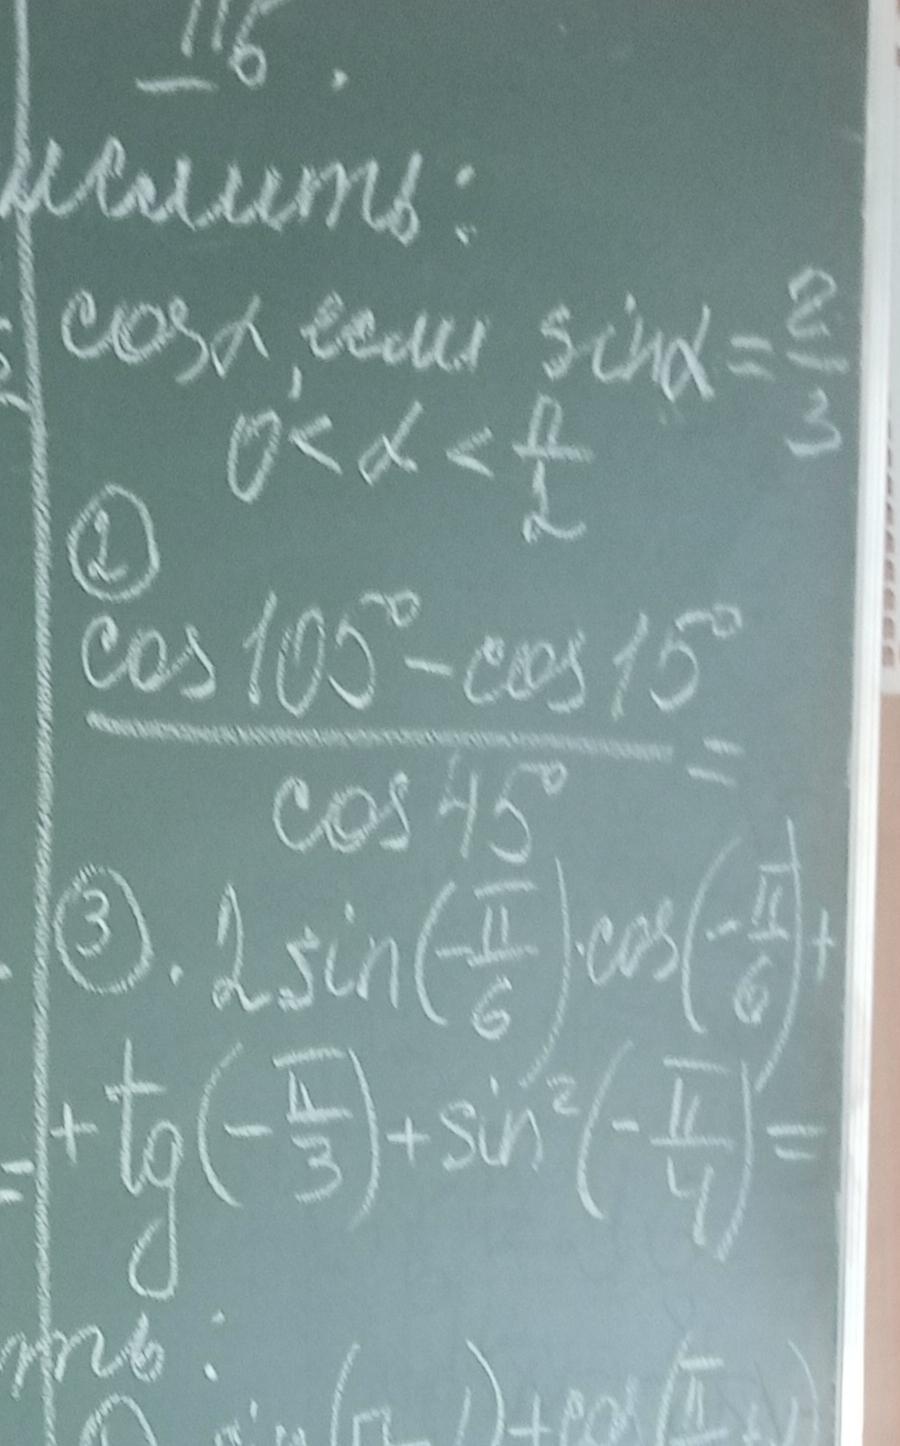 Пб.
cosα, если sinα = 2/3
0 < α < π/2
②
(cos 105° - cos 15°) / cos 45° =
③. 2 sin(-π/6) · cos(-π/6) +
+ tg(-π/3) + sin²(-π/4) =